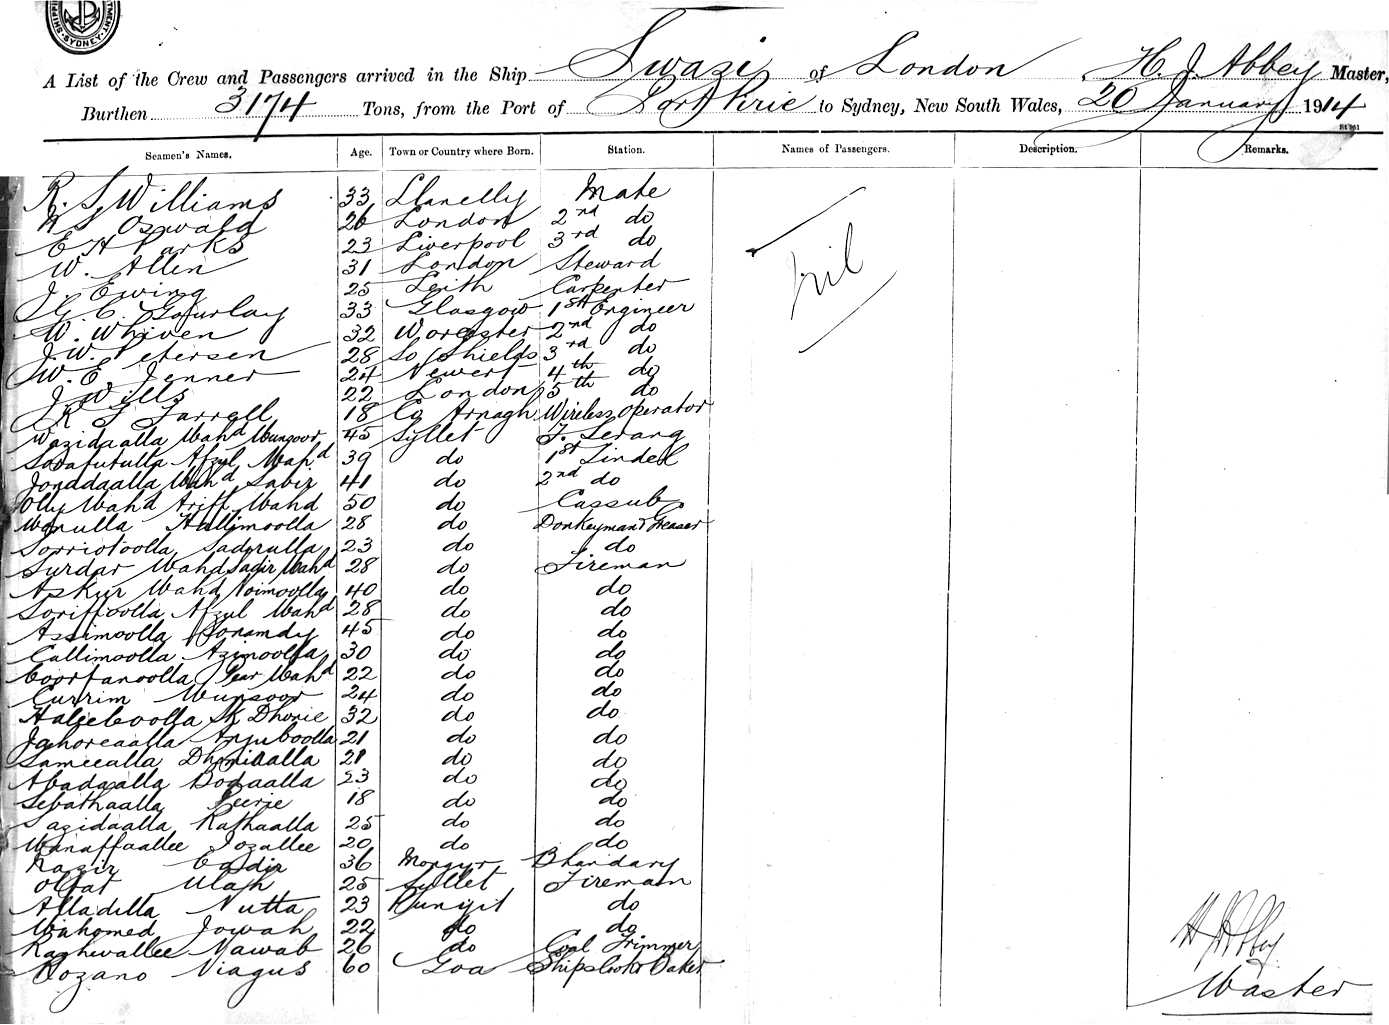 SYDNEY.
A List of the Crew and Passengers arrived in the Ship Swazi of London, H. J. Abbey Master,
Burthen 3174 Tons, from the Port of Port Pirie to Sydney, New South Wales, 20 January 1914
Seamen's Names. Age. Town or Country where Born. Station. Names of Passengers. Description. Remarks.
R. S. Williams 33 Llanelly Mate
Oswald 26 London 2nd do
E A Parks 23 Liverpool 3rd do
W. Allen 31 London Steward
J. Ewing 25 Leith Carpenter
G. C. Gourlay 33 Glasgow 1st Engineer
W. Whiven 32 Worcester 2nd do
J. W. Petersen 28 So Shields 3rd do
W. E. Jenner 24 4th do
J. Wills 22 London 5th do
R G Farrell 18 Co Armagh Wireless operator
Wazidaalla Mahd Munsoor 45 Syllet F. Serang
Afzul Mahd 39 do 1st Tindel
Mahd Sabir 41 do 2nd do
Olly Mahd Ariff Mahd 50 do Cassub
Manulla Hallimoolla 28 do Donkeyman & Greaser
Sadrulla 23 do do
Surdar Mahd Sadir Mahd 28 do Fireman
Askur Mahd Noimoolla 40 do do
Soriffoolla Afzul Mahd 28 do do
Assimoolla 45 do do
Callimoolla Azimoolla 30 do do
Goorfanoolla Pear Mahd 22 do do
Currim Munsoor 24 do do
Sk Dhonie 32 do do
Anjuboolla 21 do do
Sameealla 21 do do
Abadaalla Bodaalla 23 do do
Sebathaalla Peerie 18 do do
Sazidaalla Rathaalla 25 do do
Manaffaallee Jozallee 20 do do
Nazir 36 Mongyr Bhandary
Olfat Ullah 25 Syllet Fireman
Alladilla Nutta 23 do
Mahomed Jowah 22 do do
Nawab 26 do Coal Trimmer
Rozano Viagus 60 Goa Ships Cook & Baker
nil
H J Abbey
Master